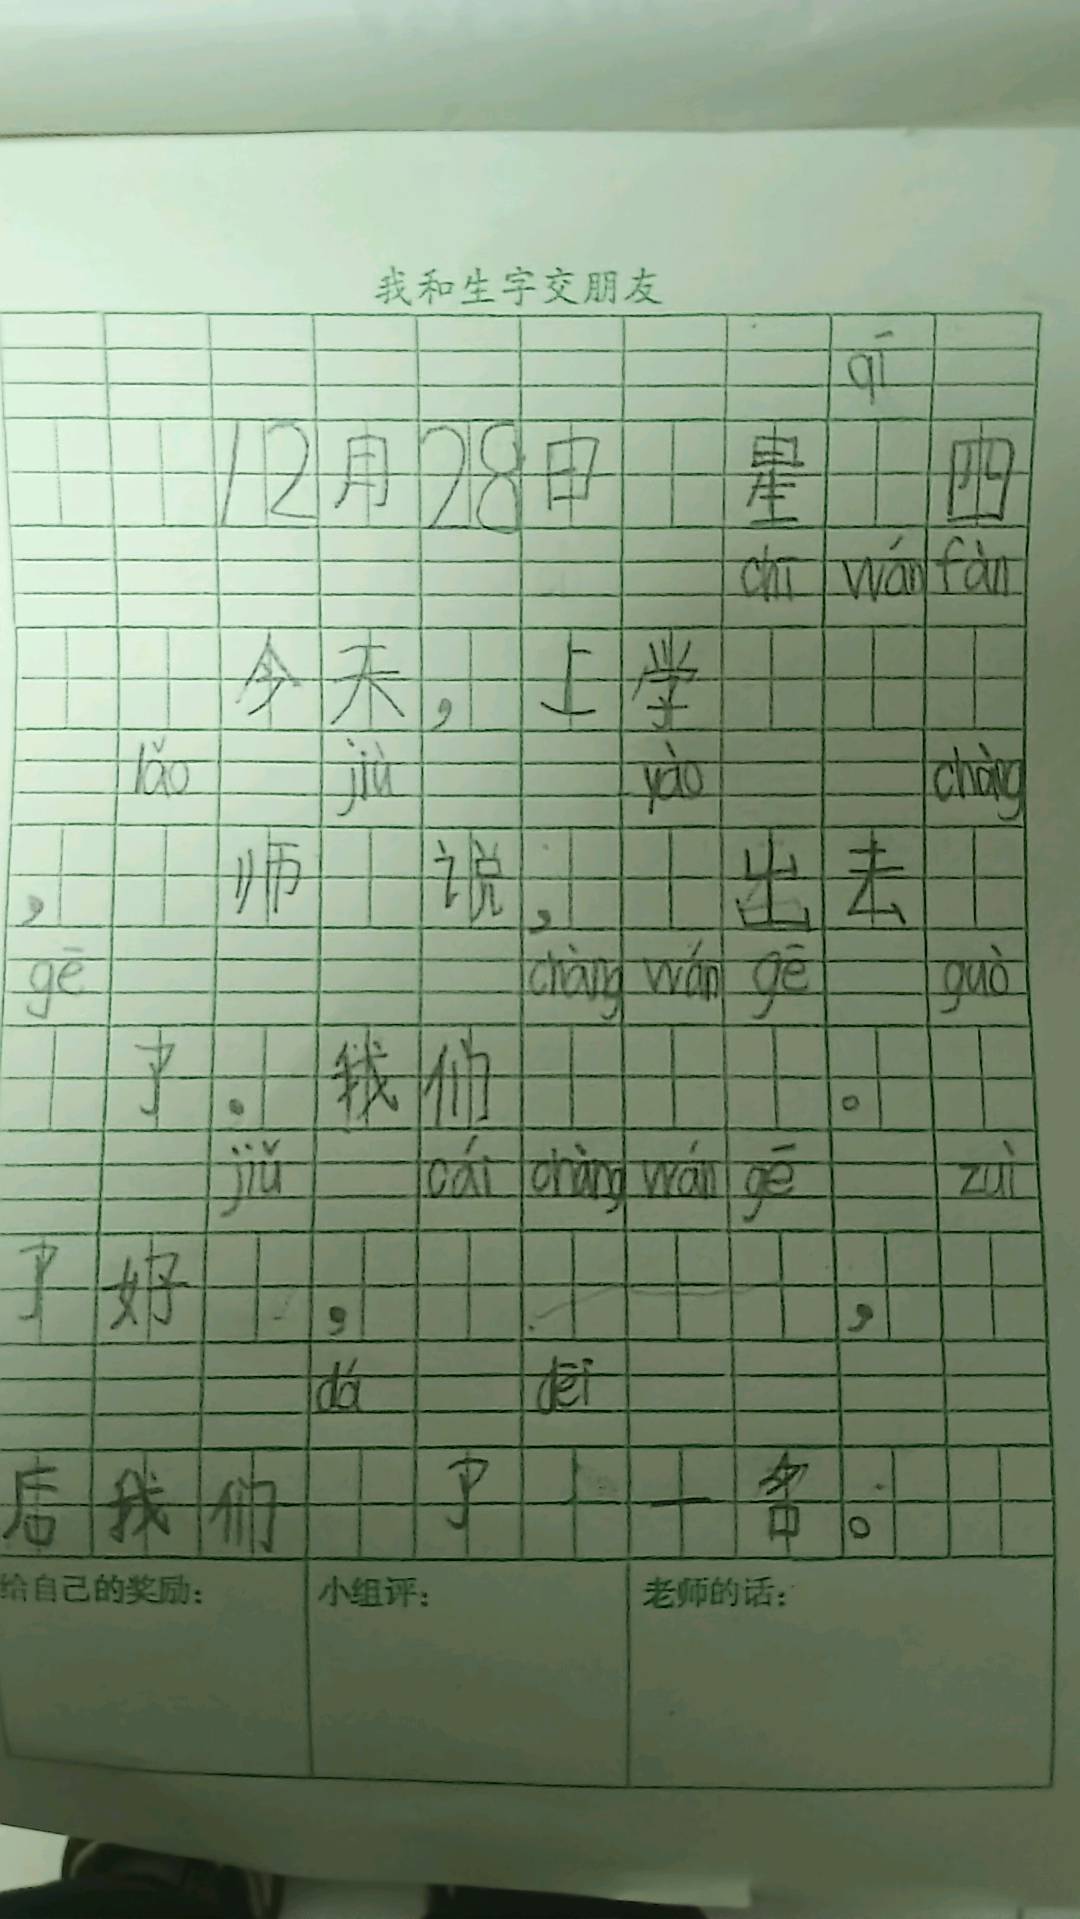 我和生字交朋友
qī
12月28日 星 四
chī wán fàn
今天，上学
lǎo jiù yào chàng
， 师 说， 出去
gē chàng wán gē guò
了。我们 。
jiǔ cái chàng wán gē zuì
了好 ， ，
dá dēi
后我们 了 一名。
给自己的奖励： 小组评： 老师的话：